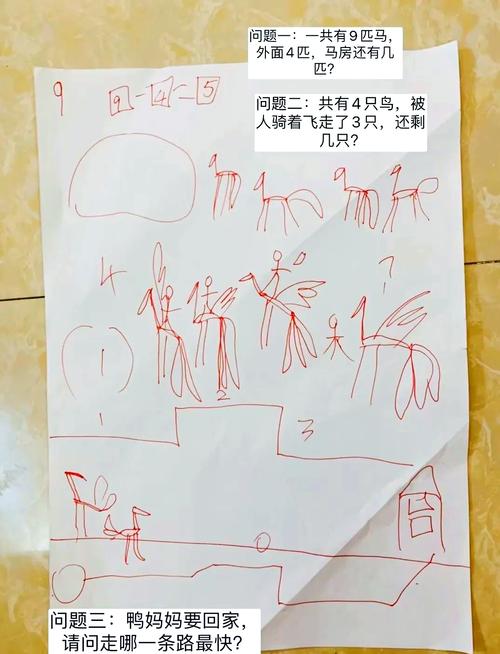 问题一：一共有9匹马，
外面4匹，马房还有几
匹？
9
9-4=5
问题二：共有4只鸟，被
人骑着飞走了3只，还剩
几只？
4
?
(1)
1
2
3
问题三：鸭妈妈要回家，
请问走哪一条路最快？